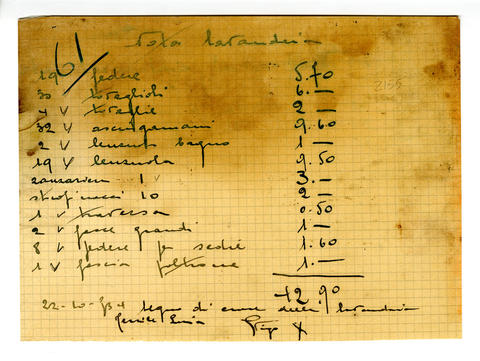 61
nota lavanderia
19 v federe 5.70
30 v tovaglioli 6.—
4 v tovaglie 2 —
32 v asciugamani 9.60
2 v lenzuola bagno 1 —
19 v lenzuola 9.50
zanzariere 1 v 3.—
strofinacci 10 2 —
1 v traversa 0.50
2 v fasce grandi 1 —
8 v federe per sedie 1.60
1 v fascia poltrone 1.—
42.90
22-10-34 segno di croce della lavandaia